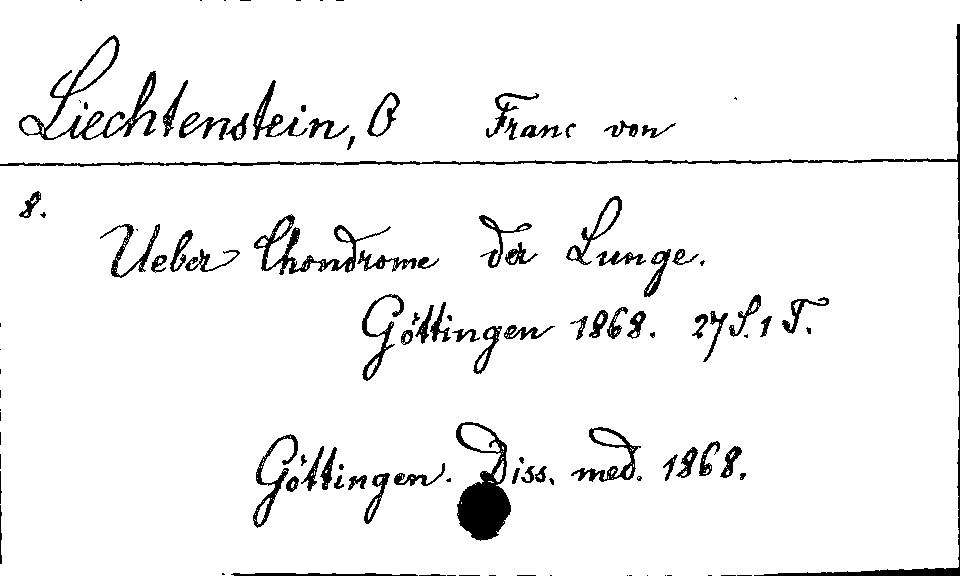 Liechtenstein, O Franc von
8.
Ueber Chondrome der Lunge.
Göttingen 1868. 27 S. 1 T.
Göttingen. Diss. med. 1868.